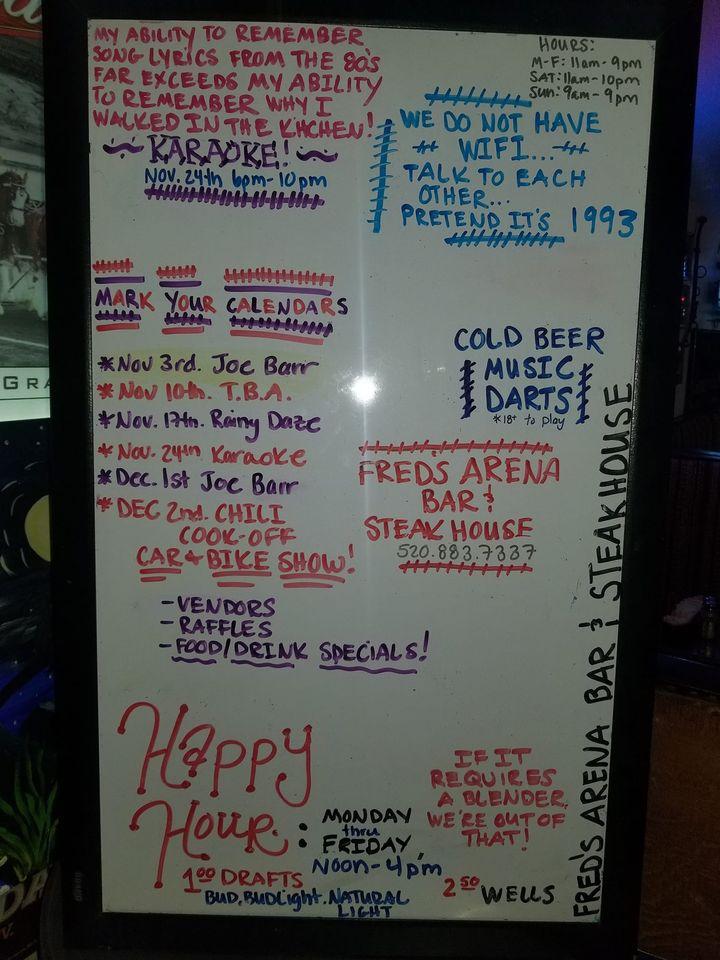 MY ABILITY TO REMEMBER
SONG LYRICS FROM THE 80'S
FAR EXCEEDS MY ABILITY
TO REMEMBER WHY I
WALKED IN THE KITCHEN!
KARAOKE!
NOV. 24th 6pm-10pm
HOURS:
M-F: 11am-9pm
SAT: 11am-10pm
Sun: 9am-9pm
WE DO NOT HAVE
WIFI...
TALK TO EACH
OTHER...
PRETEND IT'S 1993
MARK YOUR CALENDARS
*Nov 3rd. Joe Barr
*Nov 10th. T.B.A.
*Nov. 17th. Rainy Daze
*Nov. 24th Karaoke
*Dec. 1st Joe Barr
*DEC 2nd. CHILI
COOK-OFF
CAR & BIKE SHOW!
-VENDORS
-RAFFLES
-FOOD/DRINK SPECIALS!
COLD BEER
MUSIC
DARTS
*18+ to play
FREDS ARENA
BAR &
STEAK HOUSE
520.883.7337
FRED'S ARENA BAR & STEAKHOUSE
Happy
Hour:
MONDAY
thru
FRIDAY,
NOON-4pm
1.00 DRAFTS
BUD, BUDLight, NATURAL
LIGHT
IF IT
REQUIRES
A BLENDER,
WE'RE OUT OF
THAT!
2.50 WELLS
GRA